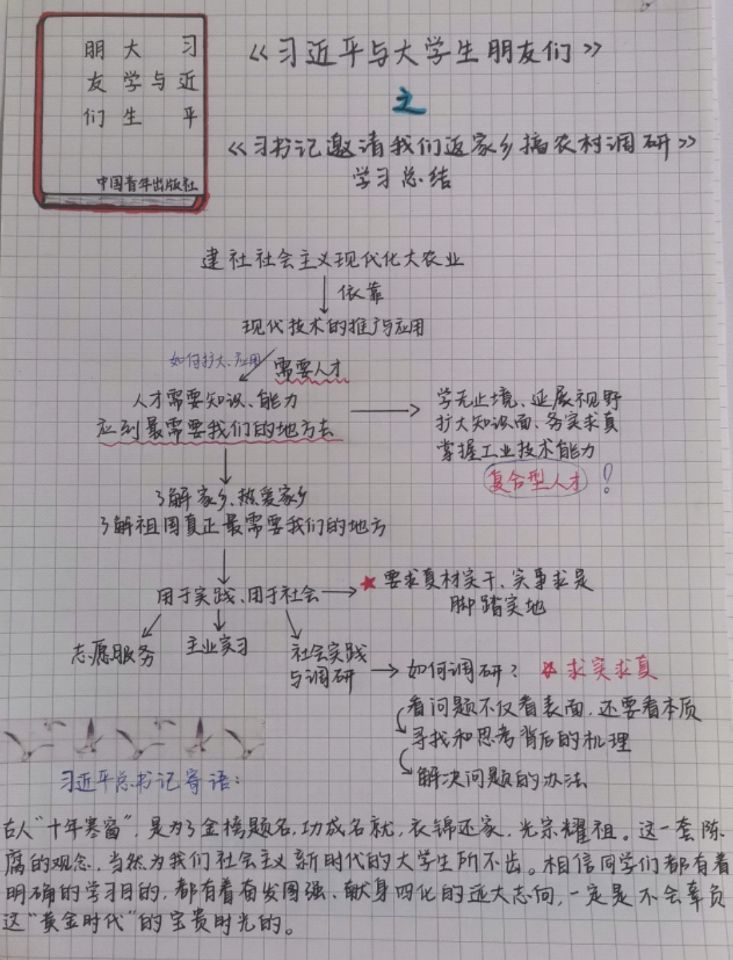 习近平
与
大学生
朋友们
中国青年出版社
《习近平与大学生朋友们》
之
《习书记邀请我们返家乡搞农村调研》
学习总结
建社社会主义现代化大农业
依靠
现代技术的推广与应用
如何扩大、应用
需要人才
人才需要知识、能力
应到最需要我们的地方去
学无止境、延展视野
扩大知识面、务实求真
掌握工业技术能力
复合型人才!
了解家乡、热爱家乡
了解祖国真正最需要我们的地方
用于实践、用于社会
★要求真材实干、实事求是
脚踏实地
志愿服务
主业实习
社会实践
与调研
如何调研?
★求实求真
看问题不仅看表面,还要看本质
寻找和思考背后的机理
解决问题的办法
习近平总书记寄语:
古人“十年寒窗”,是为了金榜题名,功成名就,衣锦还家,光宗耀祖。这一套陈
腐的观念,当然为我们社会主义新时代的大学生所不齿。相信同学们都有着
明确的学习目的,都有着奋发图强、献身四化的远大志向,一定是不会辜负
这“黄金时代”的宝贵时光的。